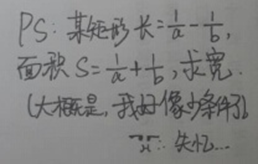 PS: 某矩形长=1/a-1/b,
面积S=1/a+1/b,求宽.
(大概是,我好像少条件了
失忆...